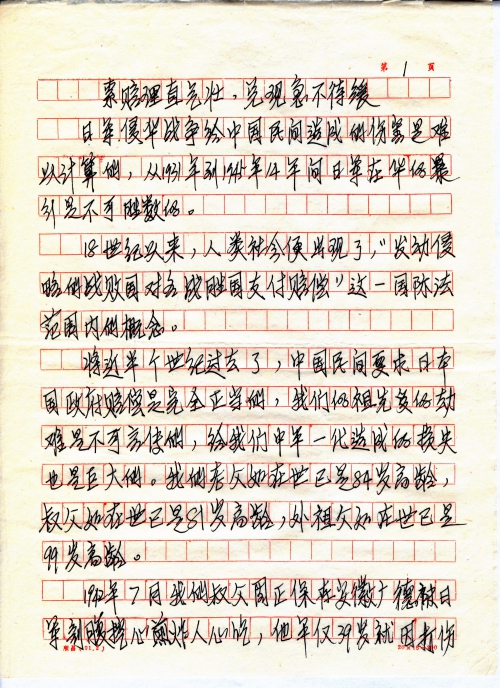 第 1 页
索赔理直气壮，兑现急不待缓
日军侵华战争给中国民间造成的伤害是难
以计算的，从1931年到1945年14年间日军在华的暴
行是不可胜数的。
18世纪以来，人类社会便出现了，"发动侵
略的战败国对各战胜国支付赔偿"这一国际法
范围内的概念。
将近半个世纪过去了，中国民间要求日本
国政府赔偿是完全正当的，我们的祖先受的劫
难是不可言使的，给我们中华一代造成的损失
也是巨大的。我的老父如在世已是84岁高龄，
叔父如在世已是81岁高龄，外祖父如在世已是
99岁高龄。
1942年7月我的叔父周正保在安徽广德被日
军剖腹挖心煎炸人心吃，他年仅39岁就因打伤